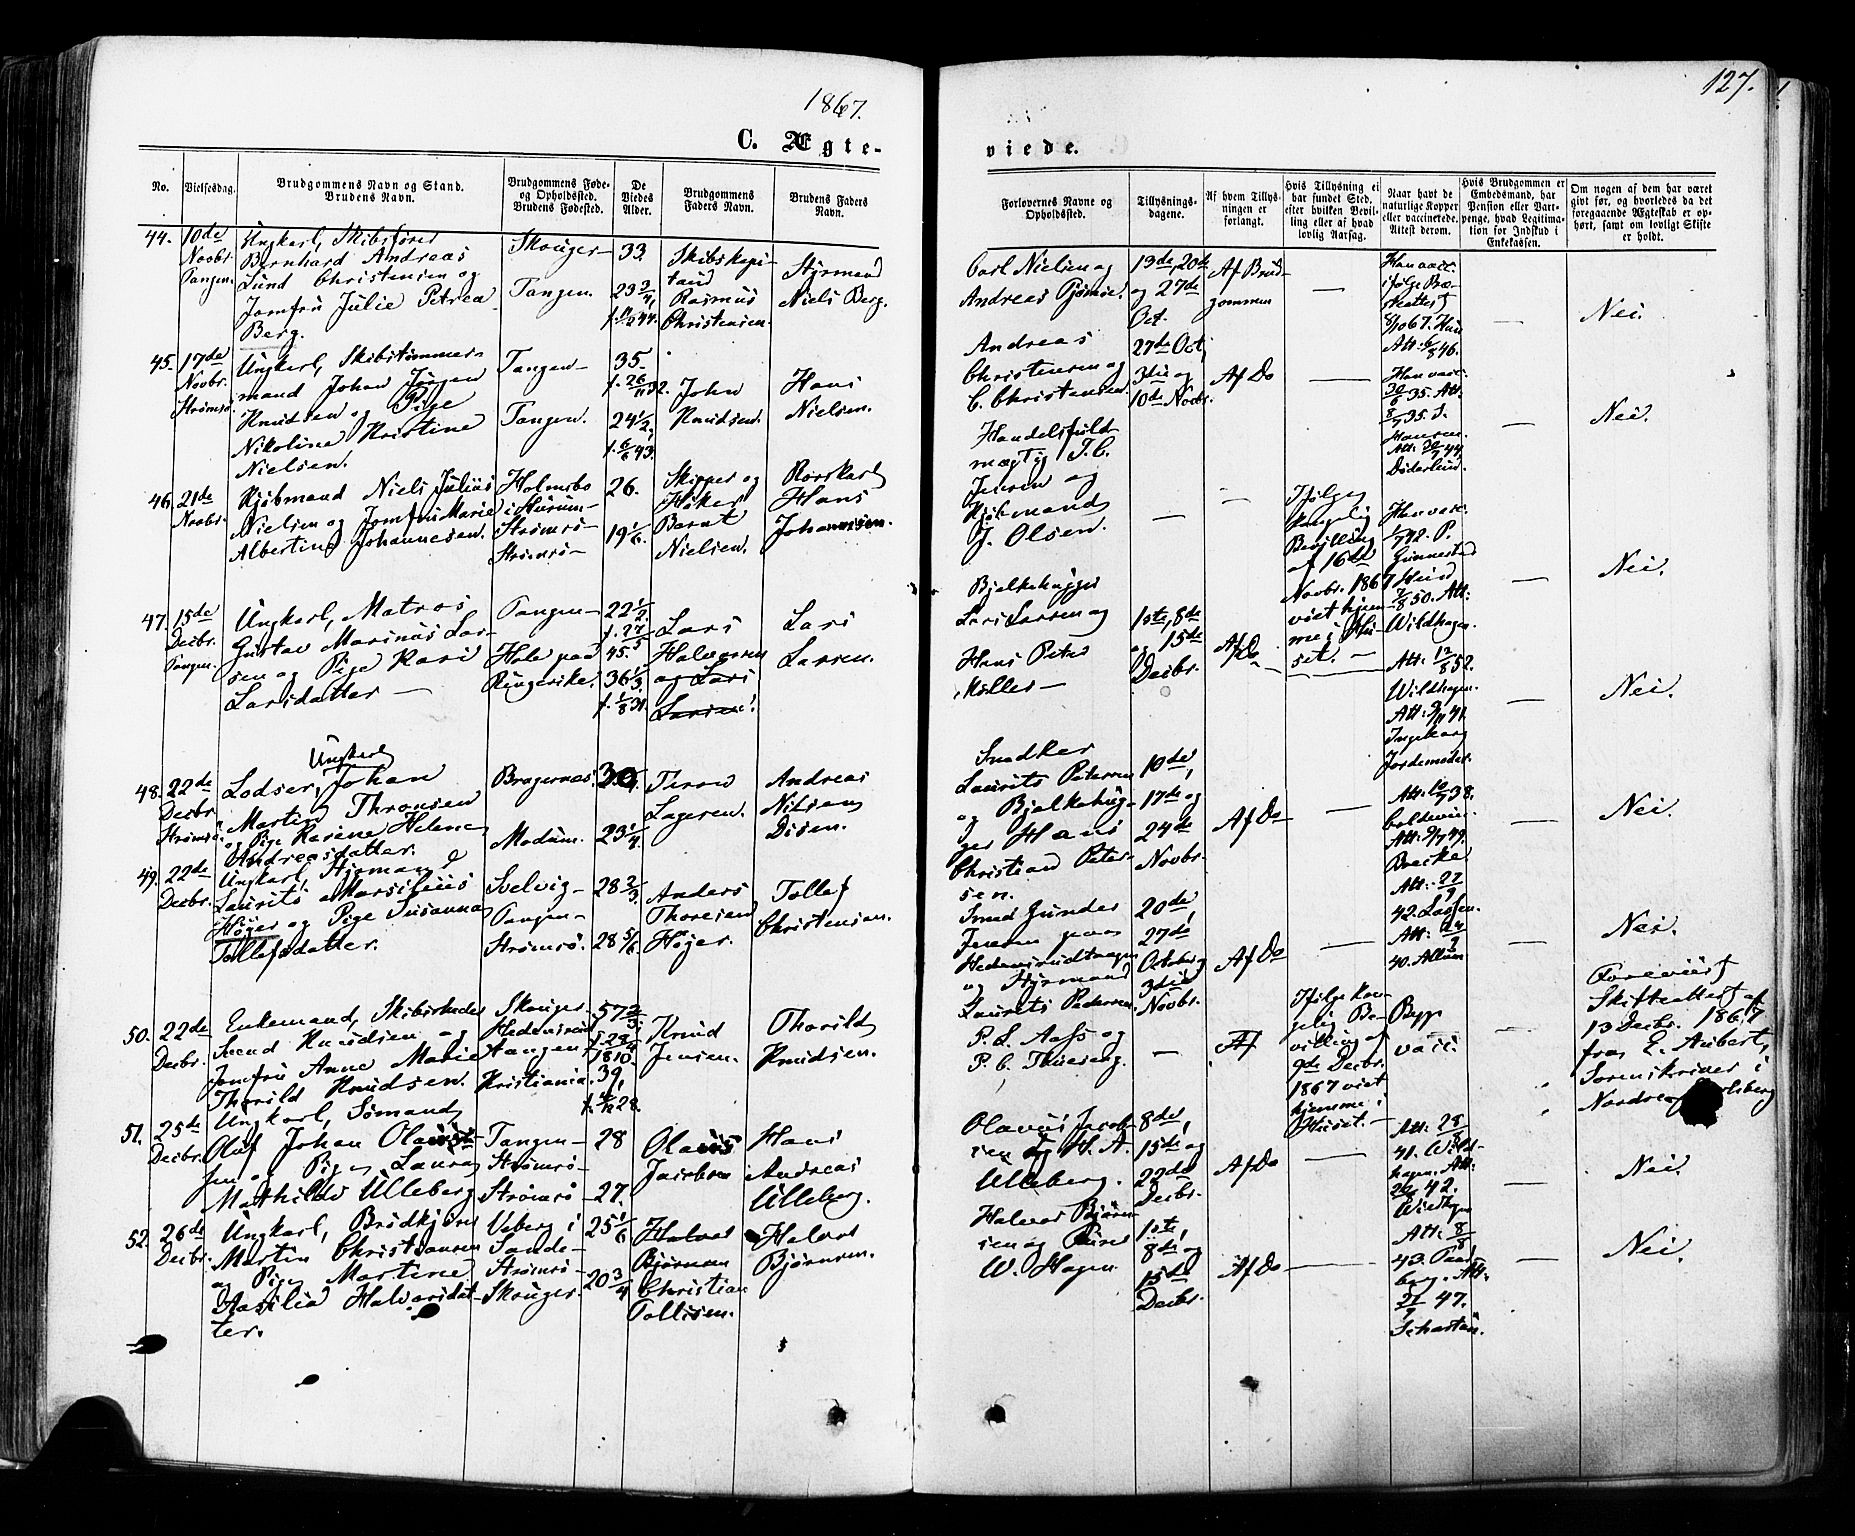 1867.
127.
C. Ægte-
viede.
No.
Vielsesdag.
Brudgommens Navn og Stand.
Brudens Navn.
Brudgommens Føde-
og Opholdssted.
Brudens Fødested.
De
Viedes
Alder.
Brudgommens
Faders Navn.
Brudens Faders
Navn.
Forlovernes Navne og
Opholdssted.
Tillysnings-
dagene.
Af hvem Tillys-
ningen er
forlangt.
Hvis Tillysning ei
har fundet Sted,
efter hvilken Bevil-
ling eller af hvad
lovlig Aarsag.
Naar havt de
naturlige Kopper
eller vaccinerede.
Attest derom.
Hvis Brudgommen er
Embedsmand, har
Pension eller Vart-
penge, hvad Legitima-
tion for Indskud i
Enkekassen.
Om nogen af dem har været
givt før, og hvorledes da det
foregaaende Ægteskab er op-
hørt, samt om lovligt Skifte
er holdt.
44.
10de
Novbr.
Tangen.
Ungkarl, Skibsfører
Bernhard Andreas
Lund Christensen og
Jomfru Julie Petrea
Berg.
Skouger
Tangen.
33.
23 3/4
Skibskapi-
tain
Rasmus
Christensen.
Styrmand
Niels Berg.
Carl Nielsen og
Andreas
13de, 20de
og 27de
Oct.
Af Brud-
gommen
8/10 67.
Att.
Nei.
45.
17de
Novbr.
Strømsø.
Ungkarl, Skibstømmer-
mand Johan Jürgen
Knudsen og Pige
Nikoline Kristine
Nielsen.
Tangen
Tangen.
35
f. 26/11 32.
24 1/2
f. 6/6 43.
John
Knudsen.
Hans
Nielsen.
Andreas
Christensen og
C. Christensen.
27de Oct,
3die og
10de Novbr.
Af Do
35. Att.
Nei.
46.
21de
Novbr.
Kjøbmand Niels Julius
Nielsen og Jomfru Marie
Albertine Johannesen.
Holmsbo
i Hurum
Strømsø
Strømsø
26.
19 1/6
Skipper og
Høker
Bernt
Nielsen.
Rorskarl
Hans
Johannesen.
Handelsfuld-
mægtig T. C.
Jensen og
Kjøbmand
J. Olsen.
Ifølge
kongelig
Bevilling
af 16de
Novbr. 1867
viet hjem-
me i Hu-
set.
Nei.
47.
15de
Decbr.
Tangen.
Ungkarl, Matros
Gustav Marinus Lar-
sen og Pige Kari
Larsdatter
Tangen
Hole paa
Ringerike.
22 1/2
f. 27/5
45.
36 1/3
f. 1/8 31.
Lars
Halvorsen
og Lars
Larsen!
Lars
Larsen.
Bjelkehugger
Lars Larsen og
Hans Peter
Møller
1ste, 8de
og 15de
Decbr.
Af Do
Att: 12/8 52.
Wildhagen.
Att: 9/11 41.
Ingeborg
Jordemoder.
Nei.
48.
22de
Decbr.
Strømsø.
Ungkarl
Lodser, Johan
Martin Thronsen
og Pige Karine Helene
Andreasdatter.
Bragernes.
Modum.
23 1/4
Andreas
Nilsen
Disen.
Snedker
Laurits Petersen
og Bjelkehug-
ger Hans
Christian Peter-
sen.
10de,
17de og
24de
Novbr.
Af Do
Nei.
49.
22de
Decbr.
Ungkarl, Styrmand
Laurits Marsilius
Høyer og Pige Susanna
Tollefsdatter.
Svelvig
Tangen
Strømsø.
28 2/3
28 5/6
Anders
Thoresen
Høyer.
Tollef
Christensen.
Smed Gunder
Jensen paa
Hedensrudtangen
og Styrmand
Laurits Pedersen
20de,
27de
October og
3die
Novbr.
Af Do
Nei.
50.
22de
Decbr.
Enkemand, Skibsreder
Svend Knudsen og
Jomfru Anne Marie
Thorild Knudsen.
Skouger
Hedensrud
tangen
Kristiania.
57 2/3
1810.
39,
28.
Knud
Jensen.
Thorild
Knudsen.
P. L. Aass og
Ifølge kon-
gelig Be-
villing af
9de Decbr.
1867 viet
hjemme i
Huset.
Begge
vacc.
Foreviist
Skifteattest af
13 Decbr. 1867
fra E. Aubert,
Sorenskriver i
Nordre Jarlsberg
51.
25de
Decbr.
Ungkarl, Sømand
Oluf Johan Olaus-
sen og Pige Laura
Mathilde Ulleberg
Tangen
Strømsø
Strømsø
28
27.
Olaus
Jacobsen
Hans
Andreas
Ulleberg.
Olavus Jacob-
sen og H. A.
Ulleberg.
8de,
15de og
22de
Decbr.
Af Do
Att: 28/8
41. Wild-
hagen. Att.
42.
Nei.
52.
26de
Decbr.
Ungkarl, Brødkjører
Martin Christiansen
og Pige Martine
Aasilia Halvorsdat-
ter.
Veberg i
Sande
Strømsø
Skouger.
25 1/6
20 3/4
Halvor
Bjørnsen
Christian
Tollisen.
Halvor
Bjørnsen.
Halvor Bjørn-
sen og
W. Hagen
1ste,
8de og
15de
Decbr.
Af Do
Att: 8/8
43.
berg. Att.
47.
Nei.